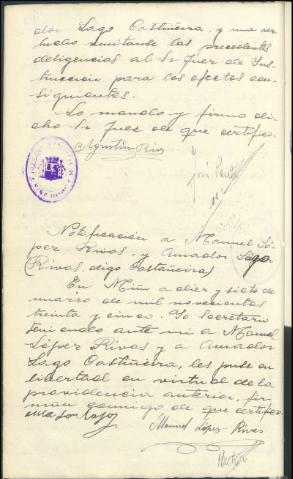 dor Lago Castiñeira, y una vez
hecho remitanse las precedentes
diligencias al Sr Juez de Ins-
trucción para los efectos con-
siguientes.
Lo mando y firmo di-
cho Sr Juez de que certifico.
Agustin Rivas
José
Notificación a Manuel Ló-
pez Rivas y Amador Lago
(Rivas, digo Castiñeira)
En Miño a diez y siete de
marzo de mil novecientos
treinta y cinco. Yo secretario
teniendo ante mi a Manuel
López Rivas y a Amador
Lago Castiñeira, les puse en
libertad en virtud de la
providencia anterior, fir-
man conmigo de que certifico
Manuel López Rivas